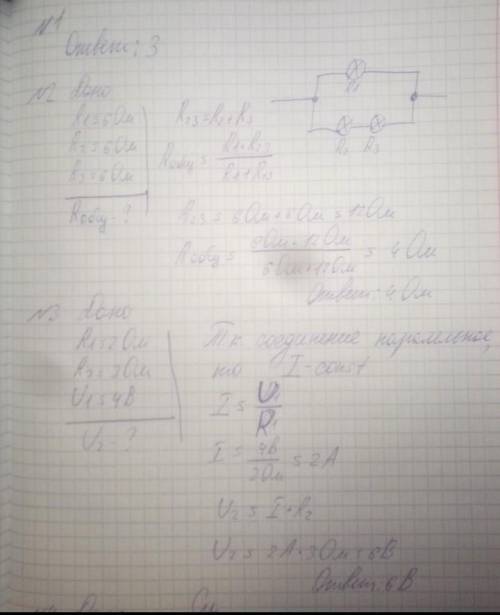 N1
Ответ: 3
N2 Дано
R1=6Ом
R2=6Ом
R3=6Ом
Rобщ-?
R23=R2+R3
Rобщ = R1·R23 / R1+R23
R1
R2 R3
R23 = 6Ом+6Ом=12Ом
Rобщ = 6Ом·12Ом / 6Ом+12Ом = 4Ом
Ответ: 4Ом
N3 Дано
R1=2Ом
R2=3Ом
U1=4В
U2-?
Т.к. соединение паралельное,
то I-const
I = U1 / R1
I = 4В / 2Ом = 2А
U2 = I·R2
U2 = 2А·3Ом=6В
Ответ: 6В